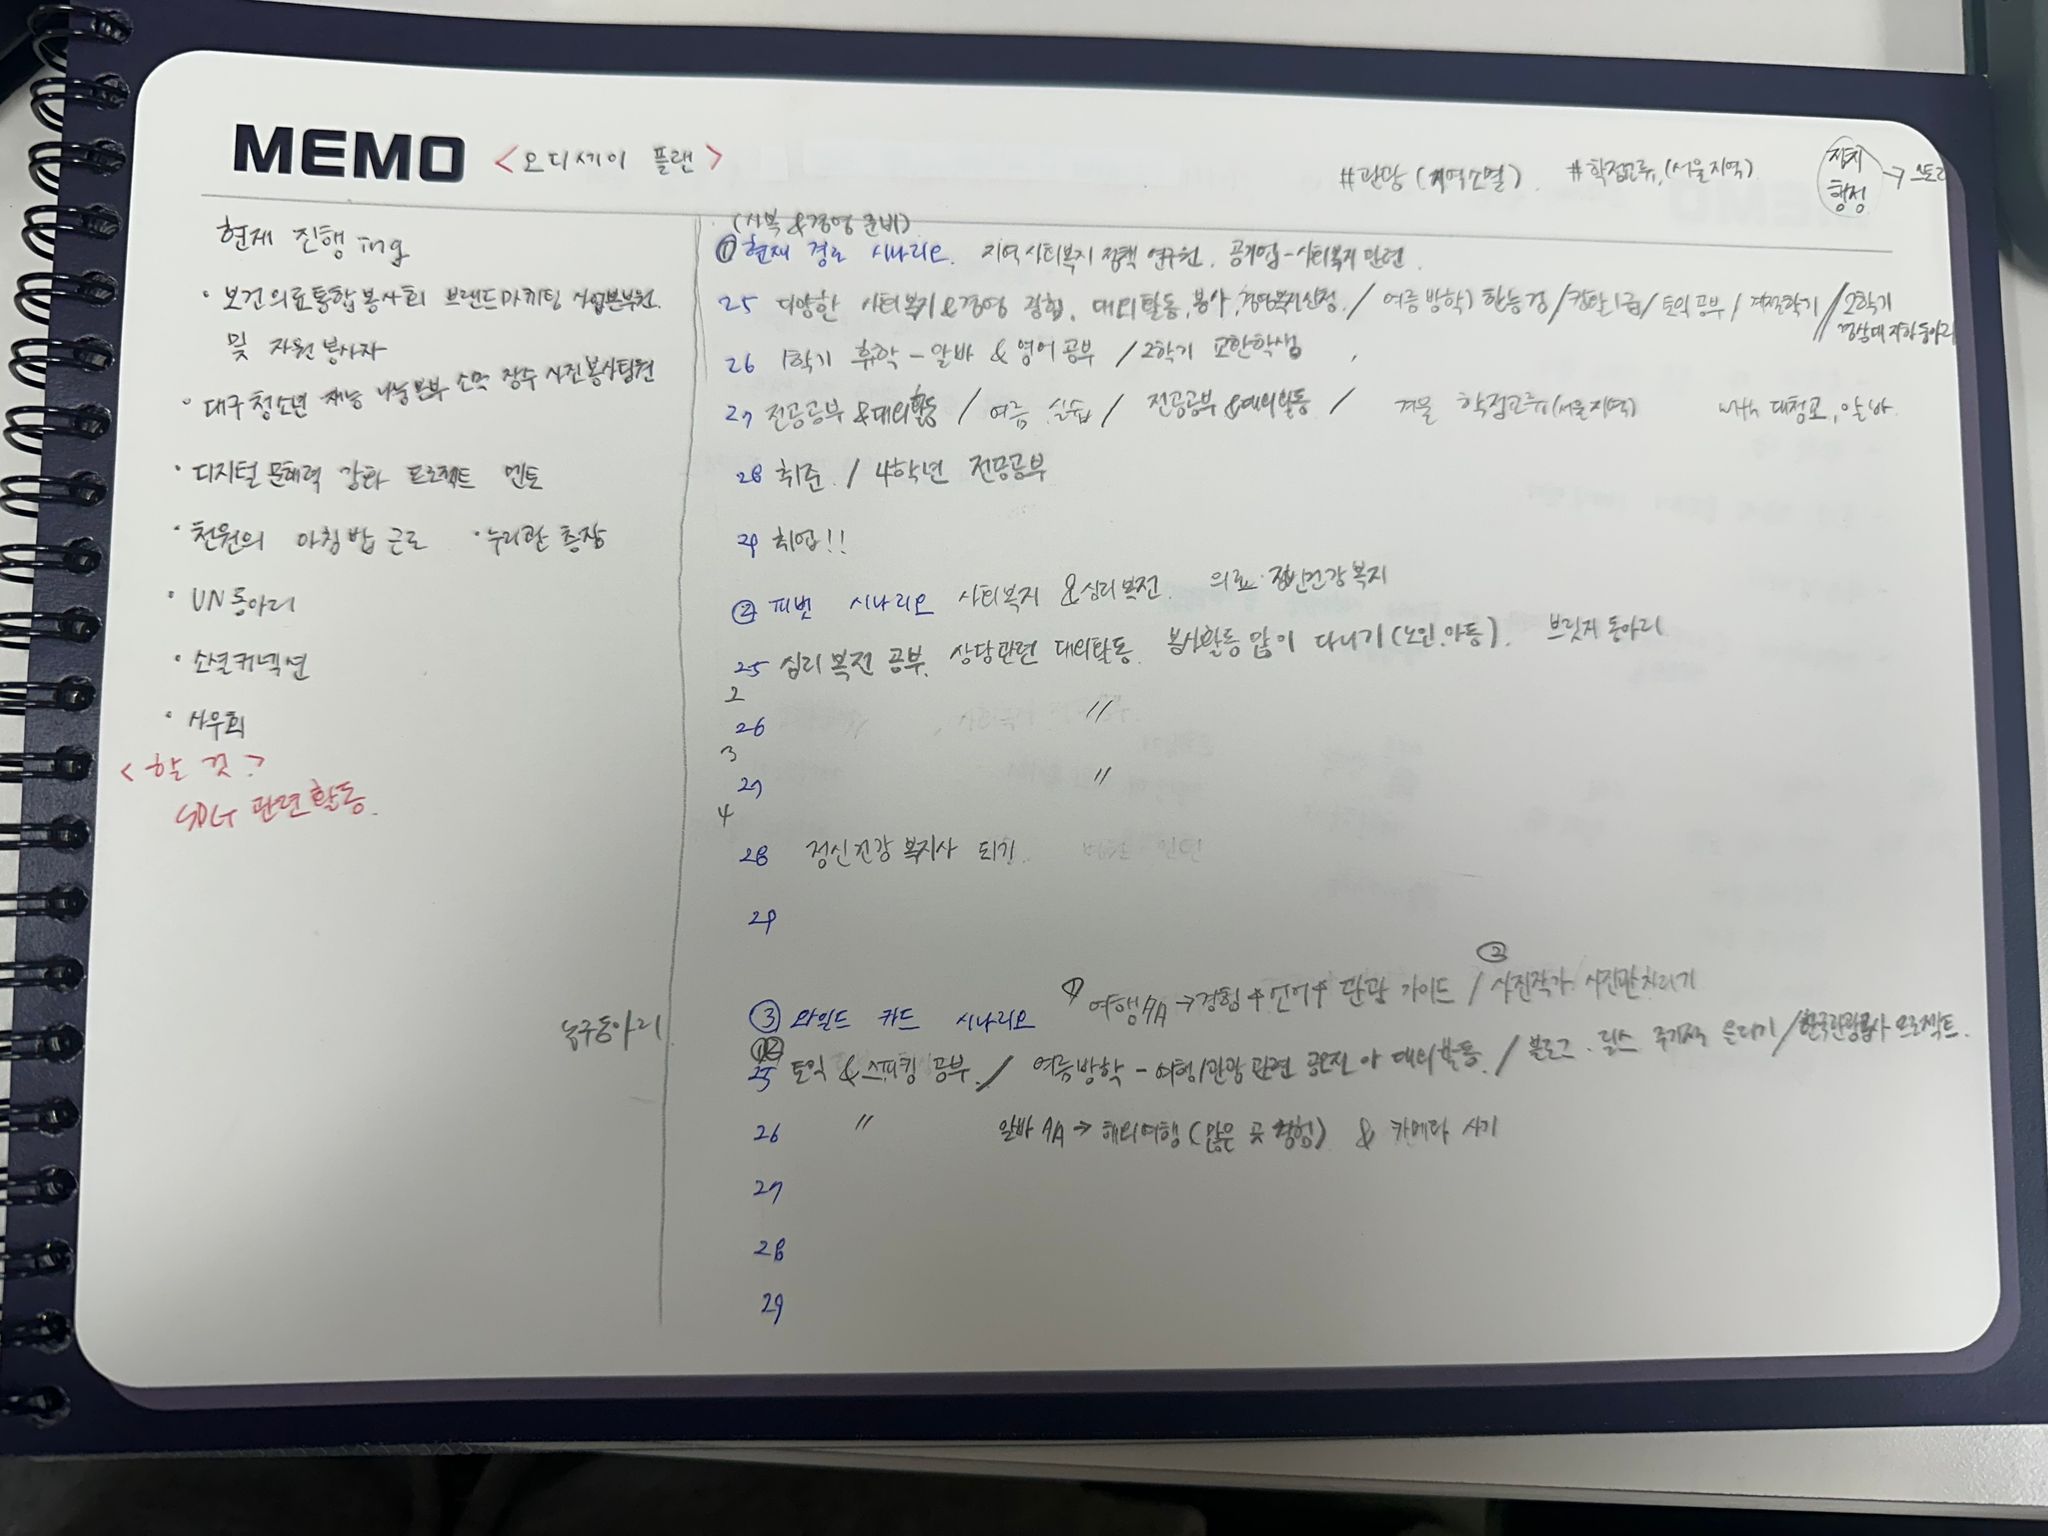 MEMO <오디세이 플랜>
#관광 (지역소멸). #학점교류, (서울지역)
자치 행정 → 스토리
현재 진행 ing
· 보건의료통합봉사회 브랜드마케팅 사업본부원.
및 자원봉사자
· 대구청소년 재능나눔본부 소먹 장수사진봉사팀원
· 디지털 문해력 강화 프로젝트 멘토
· 천원의 아침밥 근로 · 누리관 층장
· UN동아리
· 소셜커넥션
· 사우회
<할 것>
SDG 관련활동.
농구동아리
(사복 & 경영 준비)
① 현재 경로 시나리오. 지역사회복지 정책 연구원. 공기업-사회복지 관련.
25 다양한 사회복지&경영 경험, 대외활동, 봉사, 경영복지신청. / 여름방학) 한능검/컴활1급/토익공부 / 계절학기 // 2학기
경상대 자하동아리
26 1학기 휴학 - 알바 & 영어공부 / 2학기 교환학생
27 전공공부 & 대외활동 / 여름 실습 / 전공공부 & 대외활동 / 겨울 학점교류(서울지역) with 대청교, 알바.
28 취준. / 4학년 전공공부
29 취업!!
② 피벗 시나리오 사회복지 & 심리복전. 의료·정신건강복지
25 심리복전 공부. 상담관련 대외활동. 봉사활동 많이 다니기 (노인, 아동). 브릿지 동아리
2
26 〃
3
27 〃
4
28 정신건강복지사 되기.
29
③ 와일드 카드 시나리오 ① 여행사 → 경험 + 언어 + 관광 가이드 / ② 사진작가 사진만 차리기
①②
25 토익 & 스피킹 공부. / 여름방학 - 여행/관광 관련 공모전 & 대외활동. / 블로그, 릴스 주기적 올리기 / 한국관광공사 프로젝트.
26 〃 알바 → 해외여행 (많은 곳 경험) & 카메라 사기
27
28
29